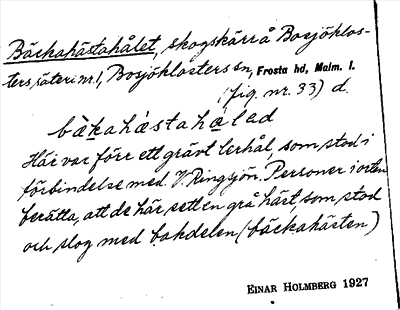 Bäckahästahålet, skogskärr å Bosjöklos-
ters säteri nr 1, Bosjöklosters sn, Frosta hd, Malm. l.
(fig. nr. 33) d.
Här var förr ett grävt lerhål, som stod i
förbindelse med V. Ringsjön. Personer i orten
berätta, att de här sett en grå häst, som stod
och slog med bakdelen (bäckahästen)
EINAR HOLMBERG 1927